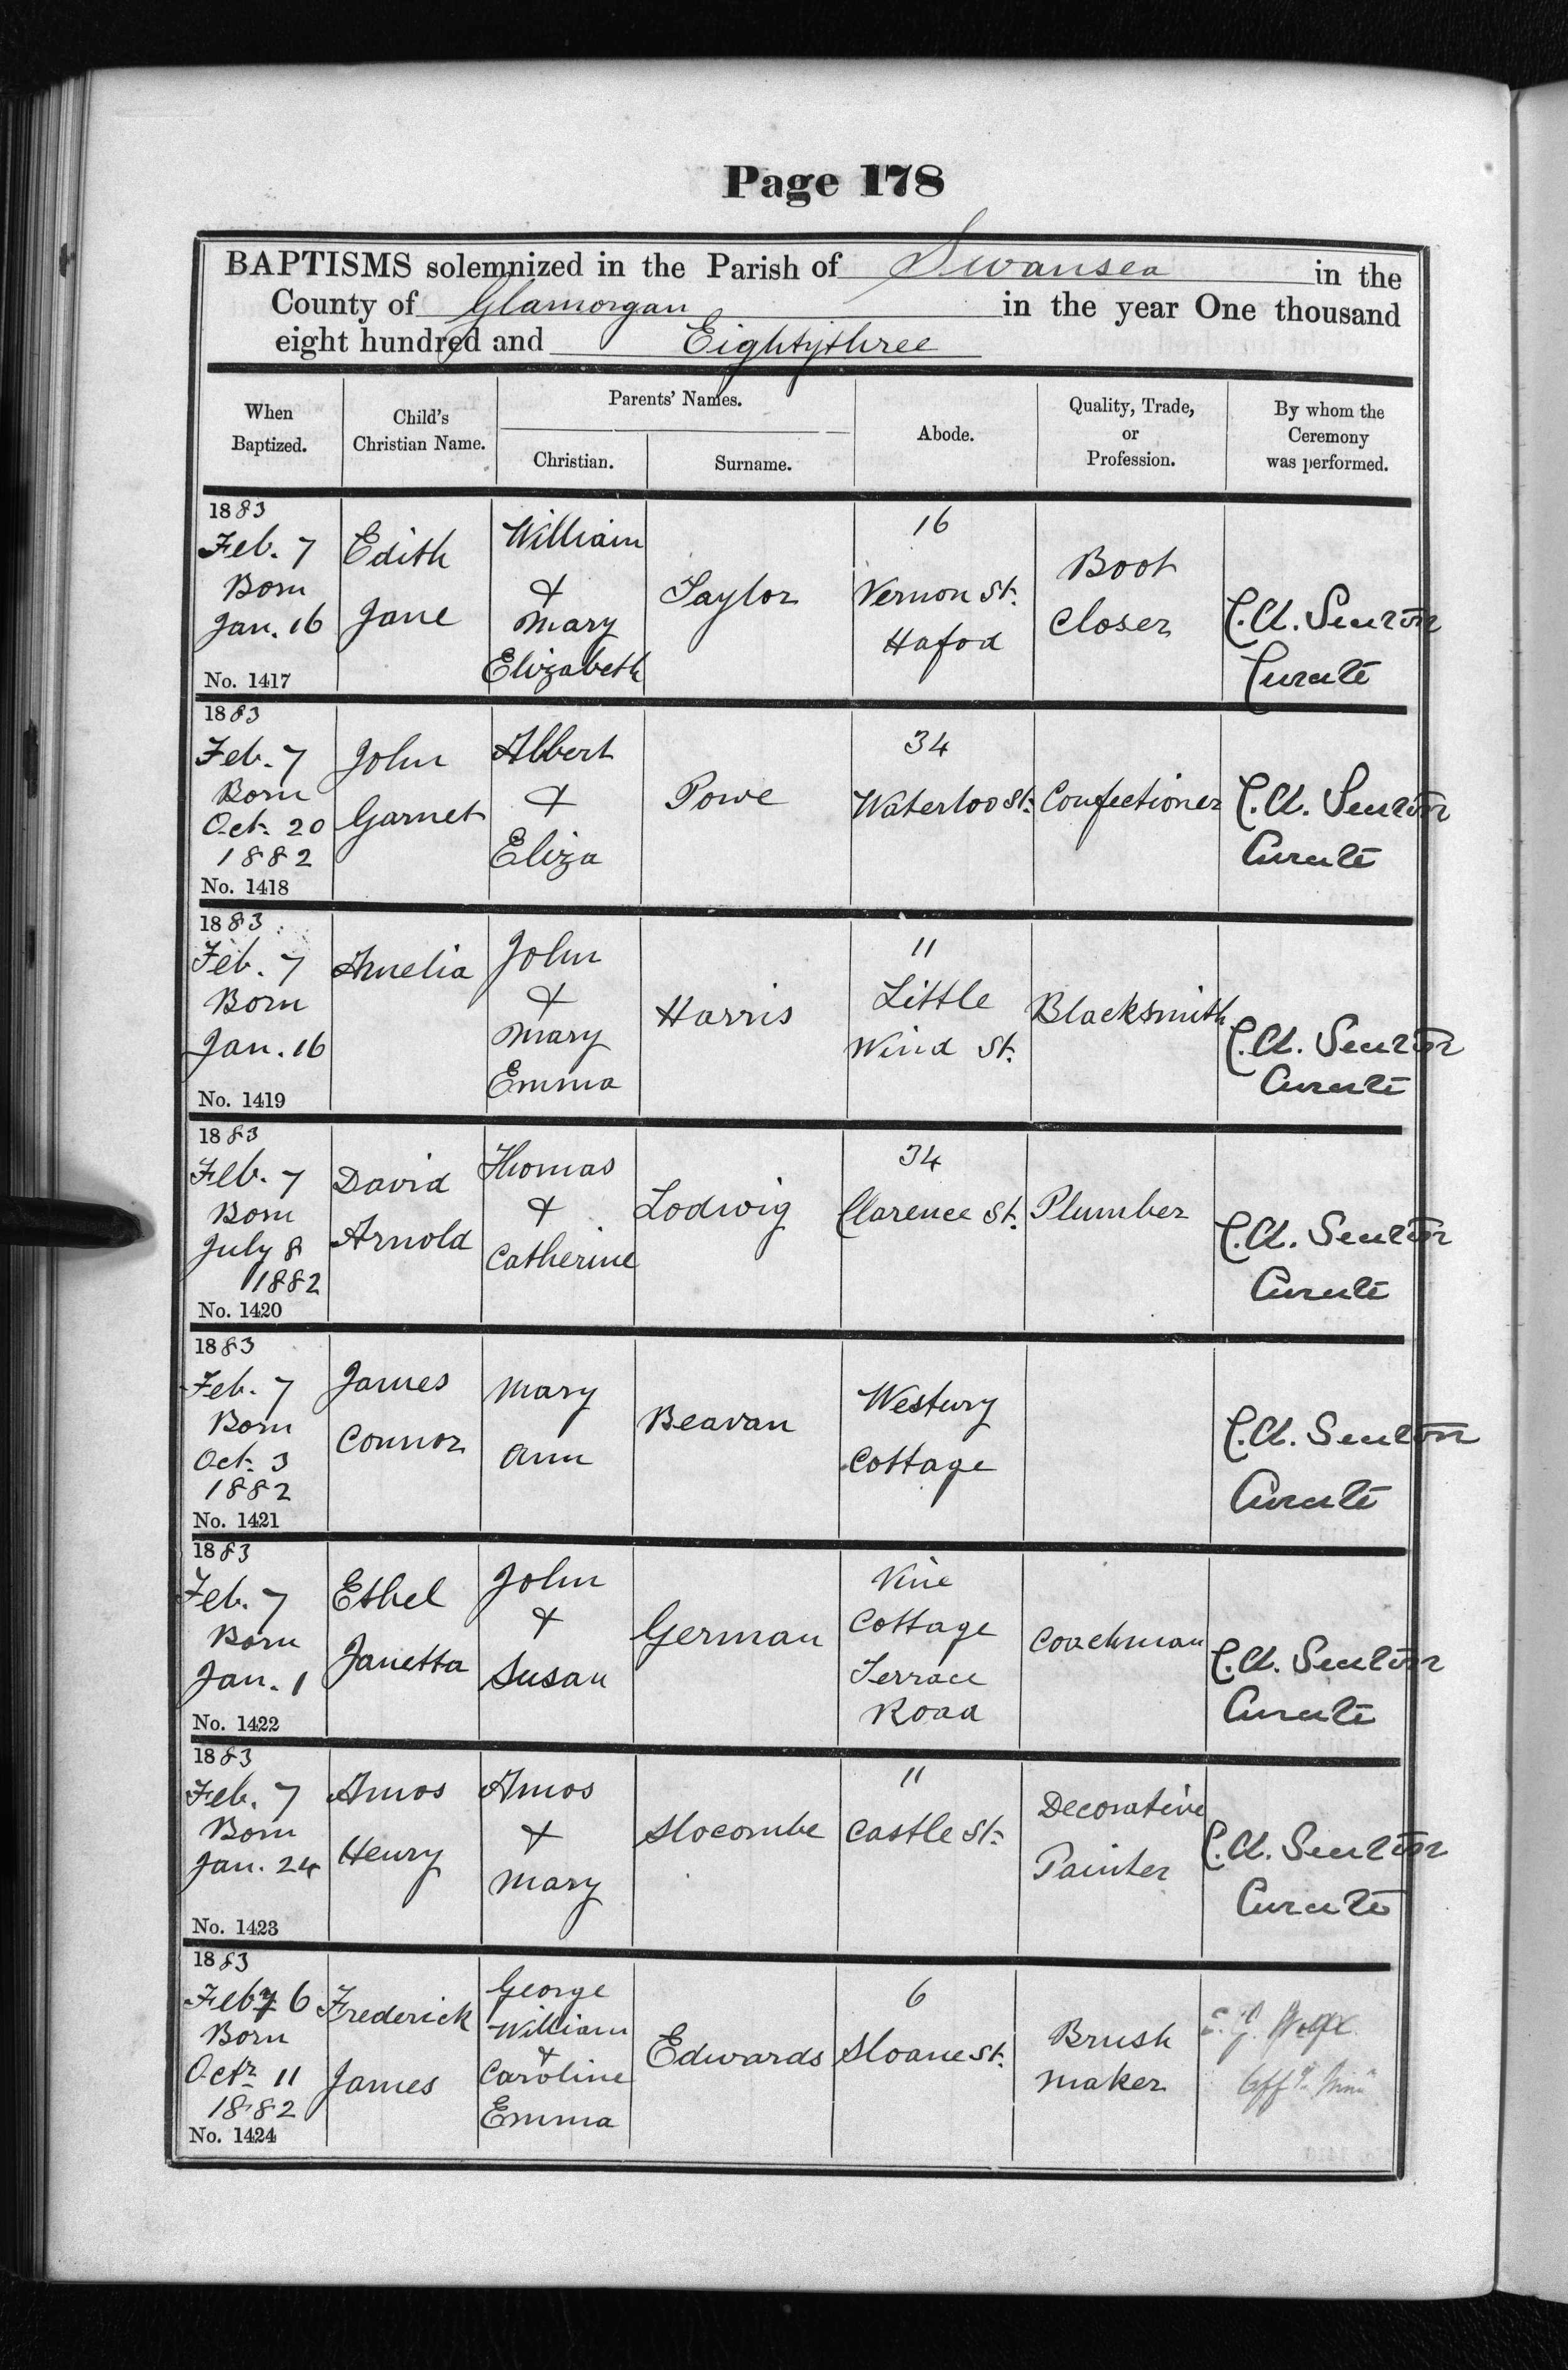 Page 178
BAPTISMS solemnized in the Parish of Swansea in the
County of Glamorgan in the year One thousand
eight hundred and Eightythree
When
Baptized.
Child's
Christian Name.
Parents' Names.
Christian.
Surname.
Abode.
Quality, Trade,
or
Profession.
By whom the
Ceremony
was performed.
1883
Feb. 7
Born
Jan. 16
No. 1417
Edith
Jane
William
&
Mary
Elizabeth
Taylor
16
Vernon St.
Hafod
Boot
Closer
C.A. Seaton
Curate
1883
Feb. 7
Born
Oct. 20
1882
No. 1418
John
Garnet
Albert
&
Eliza
Powe
34
Waterloo St.
Confectioner
C.A. Seaton
Curate
1883
Feb. 7
Born
Jan. 16
No. 1419
Amelia
John
&
Mary
Emma
Harris
11
Little
Wind St.
Blacksmith
C.A. Seaton
Curate
1883
Feb. 7
Born
July 8
1882
No. 1420
David
Arnold
Thomas
&
Catherine
Lodwig
34
Clarence St.
Plumber
C.A. Seaton
Curate
1883
Feb. 7
Born
Oct. 3
1882
No. 1421
James
Connor
Mary
Ann
Beavan
Westury
Cottage
C.A. Seaton
Curate
1883
Feb. 7
Born
Jan. 1
No. 1422
Ethel
Janetta
John
&
Susan
German
Vine
Cottage
Terrace
Road
Coachman
C.A. Seaton
Curate
1883
Feb. 7
Born
Jan. 24
No. 1423
Amos
Henry
Amos
&
Mary
Slocombe
11
Castle St.
Decorative
Painter
C.A. Seaton
Curate
1883
Feby 6
Born
Octr 11
1882
No. 1424
Frederick
James
George
William
&
Caroline
Emma
Edwards
6
Sloane St.
Brush
Maker